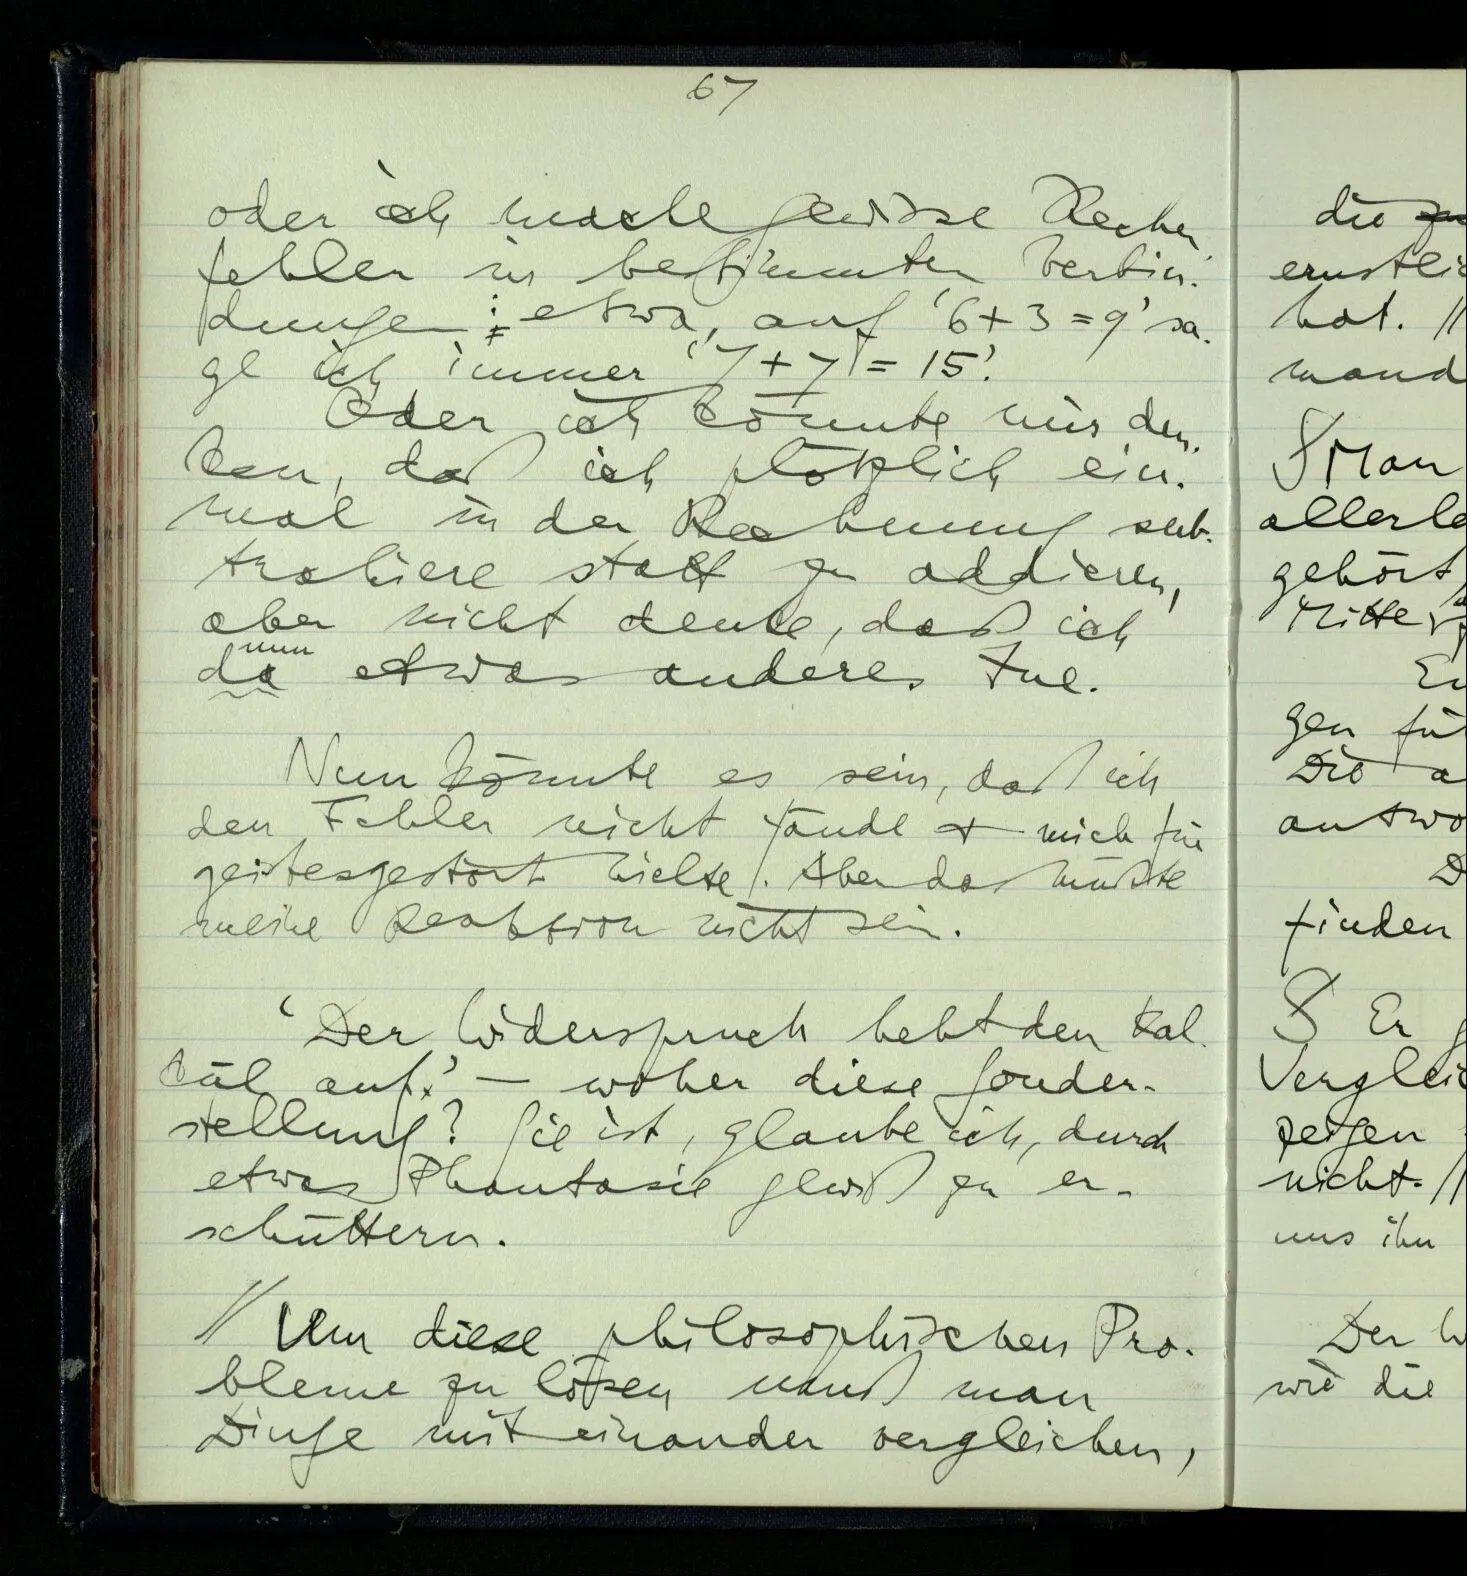 67
oder ich mache gewisse Rechen-
fehler in bestimmten Verbin-
dungen: etwa, auf '6+3=9' sa-
ge ich immer '7+7=15'.
Oder ich könnte mir den-
ken, daß ich plötzlich ein-
mal in der Rechnung sub-
trahiere statt zu addieren,
aber nicht denke, daß ich
nun
da etwas anderes tue.
Nun könnte es sein, daß ich
den Fehler nicht fände + mich für
geistesgestört hielte. Aber das müßte
meine Reaktion nicht sein.
'Der Widerspruch hebt den Kal-
kül auf.' — woher diese Sonder-
stellung? Sie ist, glaube ich, durch
etwas Phantasie gewiß zu er-
schüttern.
// Um diese philosophischen Pro-
bleme zu lösen muß man
Dinge mit einander vergleichen,
die
ernstlic
hat. //
mand
§ Man
allerle
gehört,
Mitte
En
gen für
Die a
antwo
D
finden
§ Er g
Vergleic
zeigen
nicht. //
uns ihn
Der W
wie die